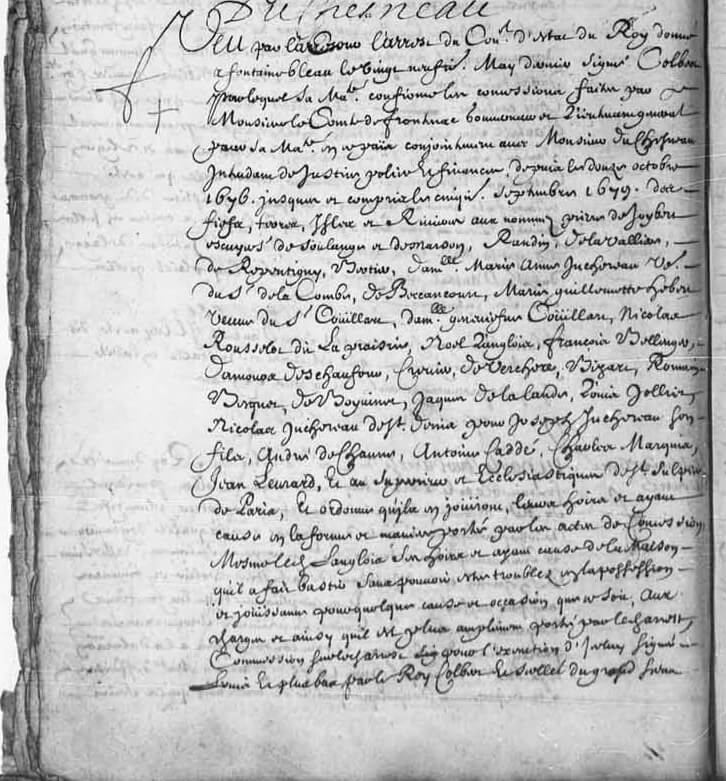 Du Chesneau
Veu par la Cour l'arrest du Con.<sup>l</sup> d'Estat du Roy donné
a fontainebleau le vingt neuf.<sup>e</sup> May dernier signé Colbert
par lequel Sa Ma.<sup>té</sup> confirme les concessions faites par
Monsieur le Comte de frontenac Gouverneur et Lieutenant general
pour Sa Ma.<sup>té</sup> en ce païs conjointement avec Monsieur du Chesneau
Intendant de Justice police et finances, depuis le douze octobre
1676. jusques et compris le cinq.<sup>e</sup> Septembre 1679. des
fiefs, terres, Isles et Rivieres aux nommez prieres de Joybert
escuyers.<sup>r</sup> de Soulanges et de marson, Randin, de la Valliere,
de Repentigny, Bertier, dam.<sup>lle</sup> Marie Anne Juchereau Ve.
du S.<sup>r</sup> de la Combe, de Beccancourt, Marie guillemette hebert
Veuve du S.<sup>r</sup> Coüillart, dam.<sup>lle</sup> genevieve Coüillart, Nicolas
Rousselot dit La prairie, Noel Langlois, françois Bellanger,
damours deschaufour, Crevier, de Vercheres, Bizart, Romain
Becquet, de Boyvinet, Jaques de la lande, Loüis Jolliet,
Nicolas Juchereau de S.<sup>t</sup> denis pour Joseph Juchereau son
fils, André de Chaune, Antoine Caddé, Charles Marquis,
Jean Levrard, Et au Superieur et Ecclesiastiques de S.<sup>t</sup> Sulpice
de Paris, Et ordonne qu'ils en joüiront, leurs hoirs et ayans
cause en la forme et maniere portée par les actes de Concession
Mesme led.<sup>t</sup> Langlois Ses hoirs et ayans cause de la Maison
qu'il a fait bastir sans pouvoir estre troublez en la possession
et joüissance pour quelque cause et occasion que ce soit, Aux
charges et ainsy qu'il est plus amplement porté par led. arrest,
Commission sur led. arrest pour l'execution d'Iceluy signée
Loüis Et plus bas par le Roy Colbert Et scellée du grand sceau